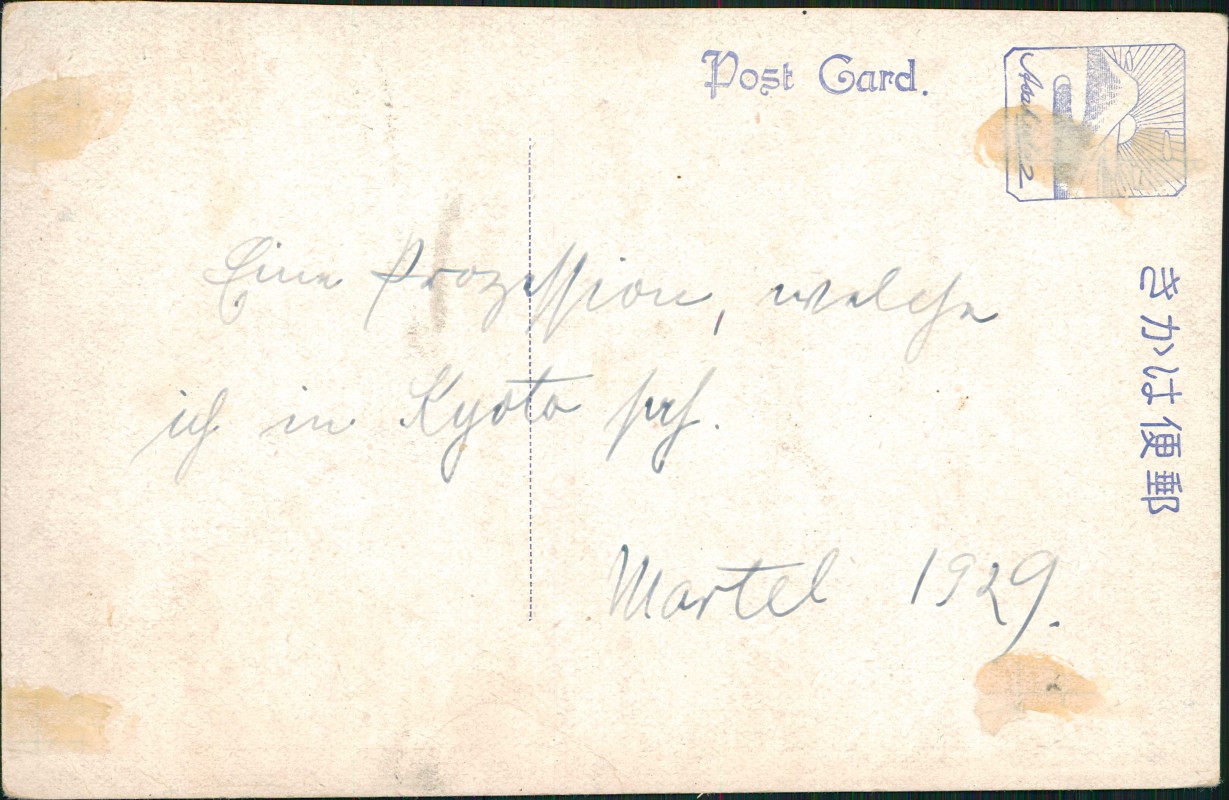 Post Card.
きかは便郵
Eine Prozession, welche
ich in Kyoto sah.
Martel 1929.